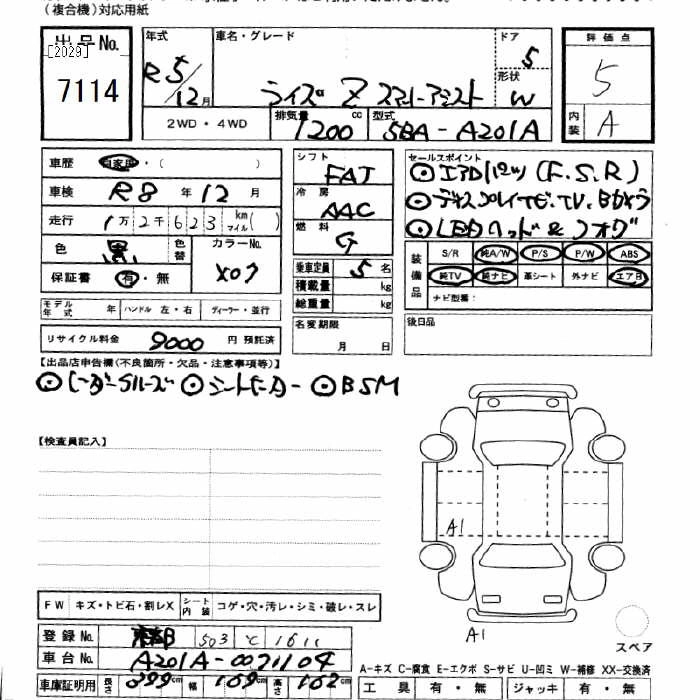 (複合機)対応用紙
出品No. 年式 車名・グレード ドア 評価点
[2029] 5 5
7114 R5/12月 ライズ Z スマートアシスト 形状 W
2WD・4WD 排気量 1200 cc 型式 5BA-A201A 内装 A
車歴 自家用・( ) シフト FAT セールスポイント
◎エアロパーツ(F.S.R)
車検 R8年12月 冷房 AAC ◎ディスプレイナビ.TV.Bカメラ
走行 1万2千623 km マイル( ) 燃料 G ◎LEDヘッド&フォグ
色 黒 色替 カラーNo. X07 乗車定員 5名 装備品 S/R 純A/W P/S P/W ABS
保証書 有・無 積載量 kg 純TV 純ナビ 革シート 外ナビ エアB
モデル年式 年 ハンドル 左・右 ディーラー・並行 総重量 kg ナビ型番:
リサイクル料金 9000円 預託済 名変期限 月 日 後日品
【出品店申告欄(不良箇所・欠品・注意事項等)】
◎レーダークルーズ ◎シートヒーター ◎BSM
【検査員記入】
A1
A1
FW キズ・トビ石・割レX シート内装 コゲ・穴・汚レ・シミ・破レ・スレ
登録No. 503 て 1611 スペア
車台No. A201A-0071104
A-キズ C-腐食 E-エクボ S-サビ U-凹ミ W-補修 XX-交換済
車庫証明用 長さ 399cm 幅 169cm 高さ 162cm 工具 有・無 ジャッキ 有・無